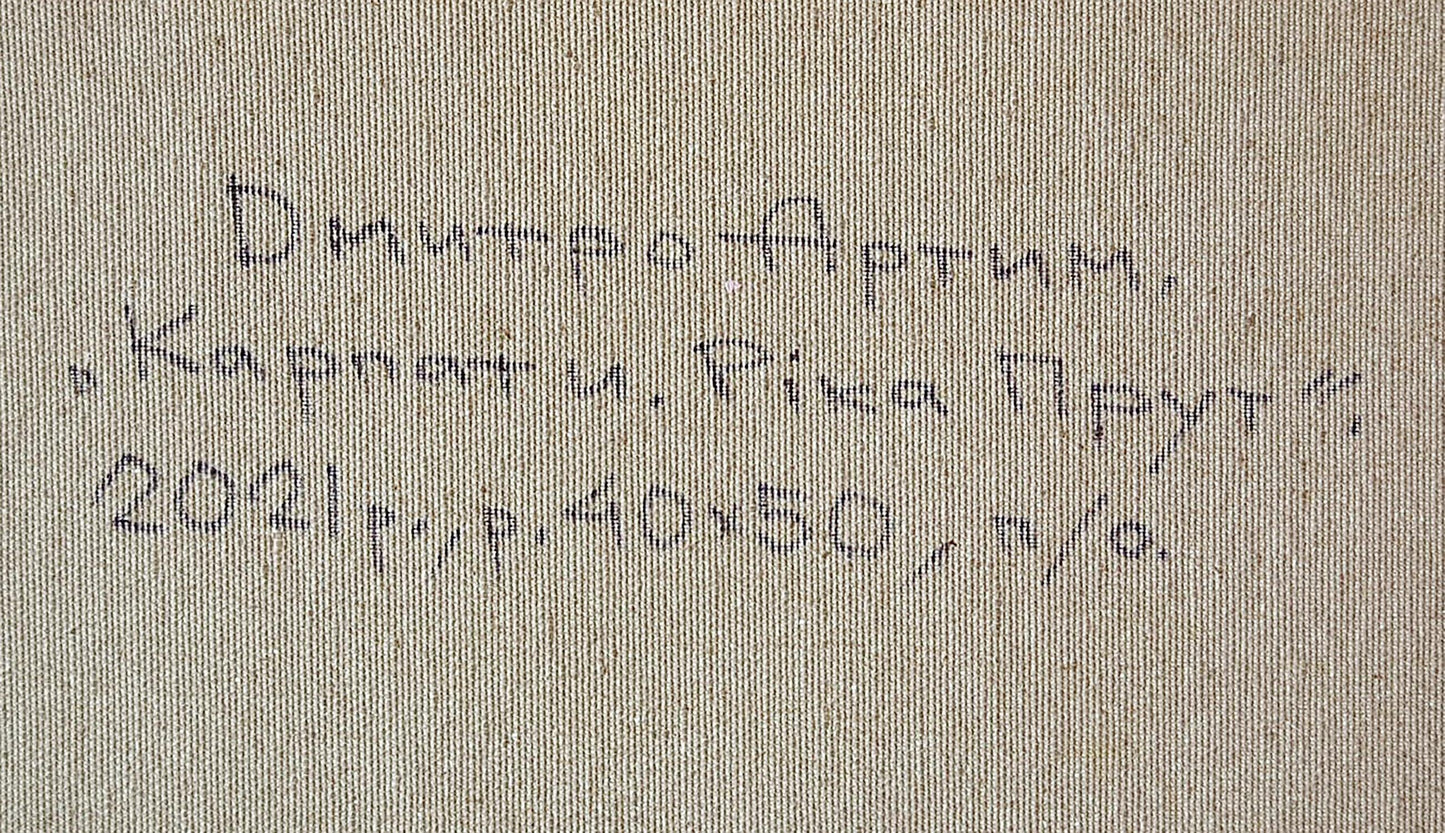 Дмитро Артим,
„Карпати. Ріка Прут“,
2021р., р. 40х50, п/о.